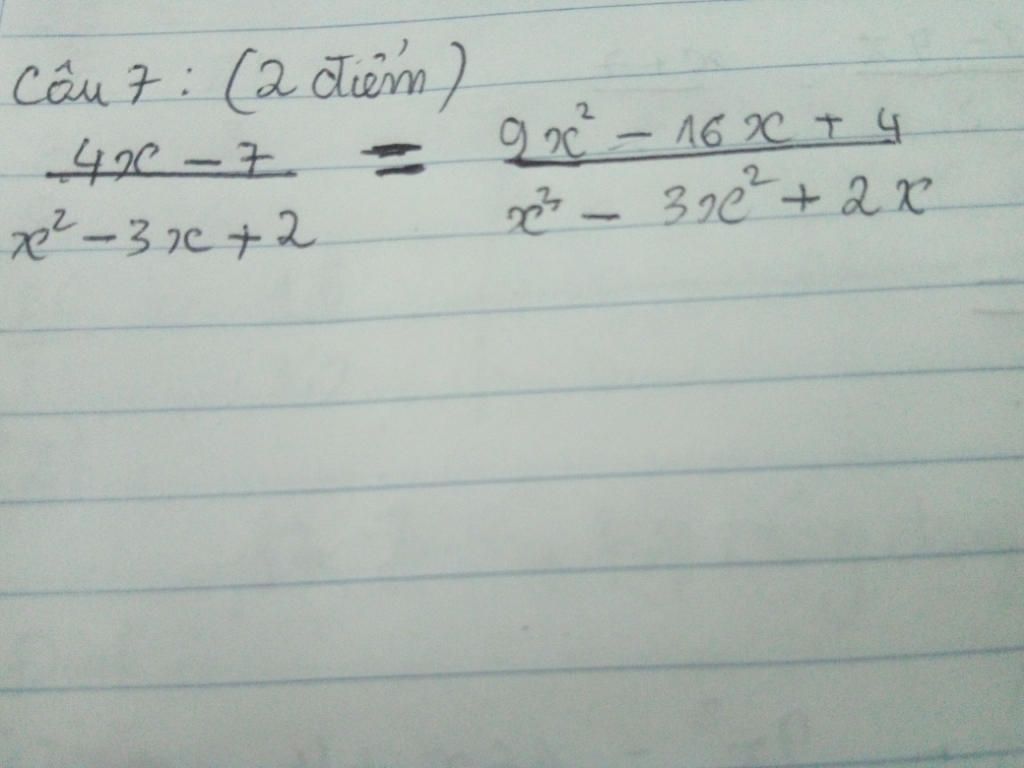 Câu 7 : (2 điểm)
4x - 7 / x² - 3x + 2 = 9x² - 16x + 4 / x³ - 3x² + 2x